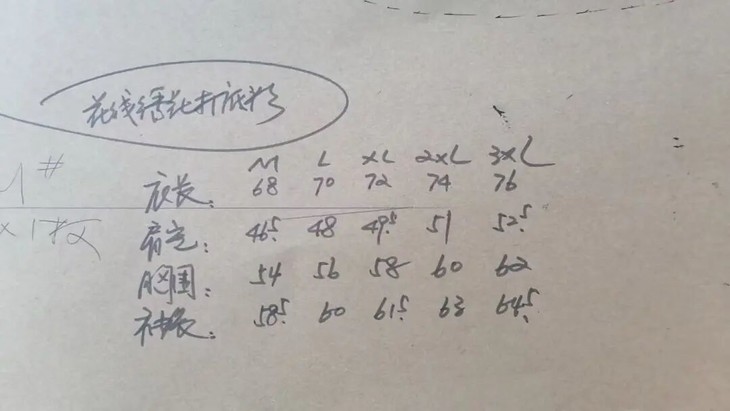 花线绣花打底衫
M L XL 2XL 3XL
衣长: 68 70 72 74 76
肩宽: 46.5 48 49.5 51 52.5
胸围: 54 56 58 60 62
袖长: 58.5 60 61.5 63 64.5
M#
x1枚